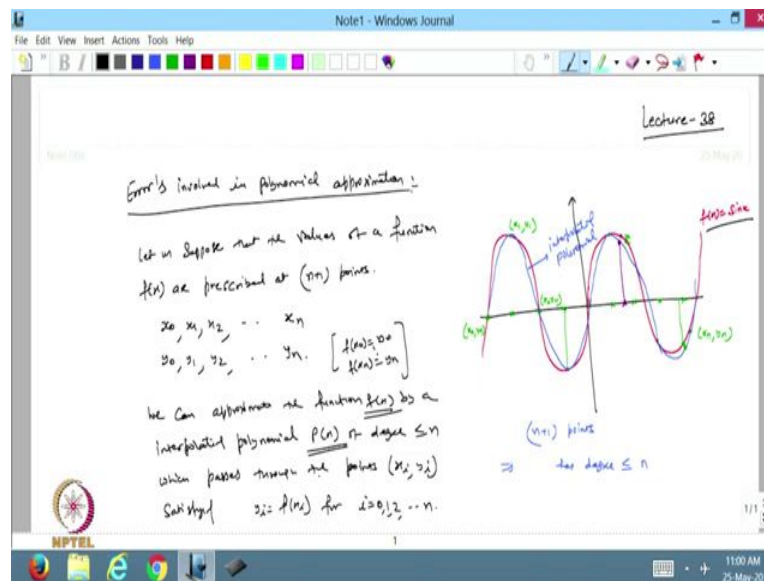 Note1 - Windows Journal
File Edit View Insert Actions Tools Help
Lecture-38
Note Title
25-May-20
Error's involved in polynomial approximation :-
Let us suppose that the values of a function
f(x) are prescribed at (n+1) points.
x0, x1, x2, .. xn
y0, y1, y2, .. yn.
[f(x0)=y0
f(xn)=yn]
We can approximate the function f(x) by a
interpolated polynomial P(x) of degree ≤ n
which passes through the points (xi, yi)
Satisfyd yi = f(xi) for i=0,1,2, .. n.
f(x)=Sinx
(x1,y1)
interpolated
polynomial
(xn,yn)
(n+1) points
⇒ has degree ≤ n
NPTEL
1
1/1
11:00 AM
25-May-20